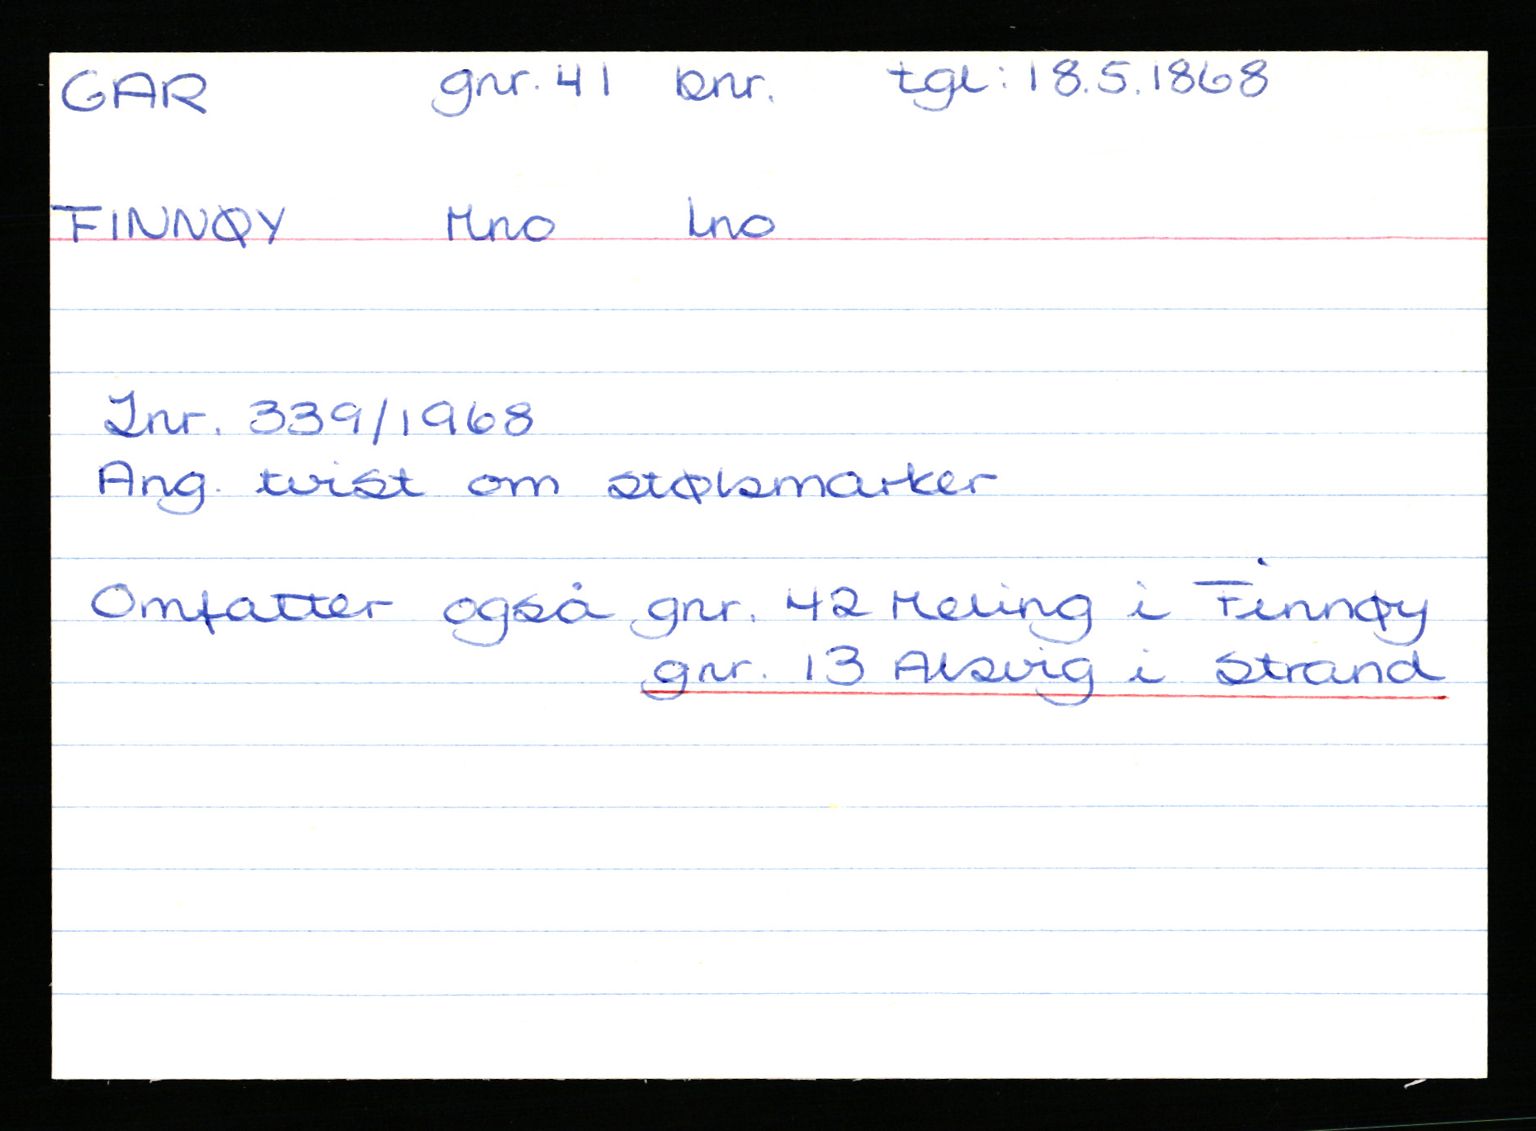 GAR gnr. 41 bnr. tgl: 18.5.1868
FINNØY Mno Lno
Jnr. 339/1968
Ang. tvist om stølsmarker
Omfatter også gnr. 42 Meling i Finnøy
gnr. 13 Alsvig i Strand